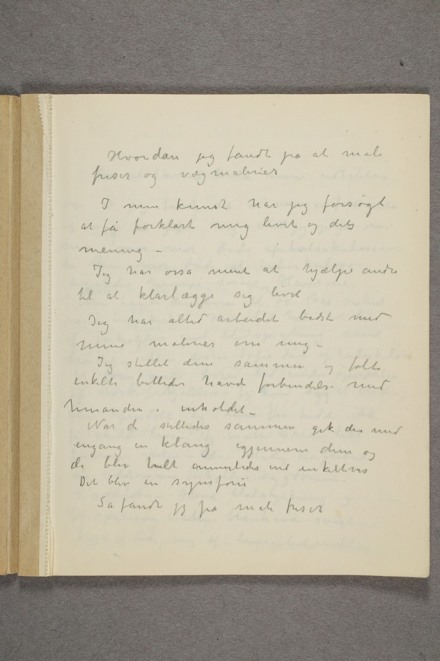 Hvordan jeg fandt på at male
friser og vægmalerier
I min kunst har jeg forsøgt
at få forklart mig livet og dets
mening –
Jeg har osså ment at hjælpe andre
til at klarlægge sig livet
Jeg har altid arbeidet bedst med
mine malerier om mig –
Jeg stillet dem sammen og følte
enkelte billeder havde forbindelse med
hinanden i inholdet –
Når de stilledes sammen gik der med
engang en klang igjennem dem og
de blev helt anderledes end enkeltvis
Det blev en symfoni
Så fandt jeg på male friser